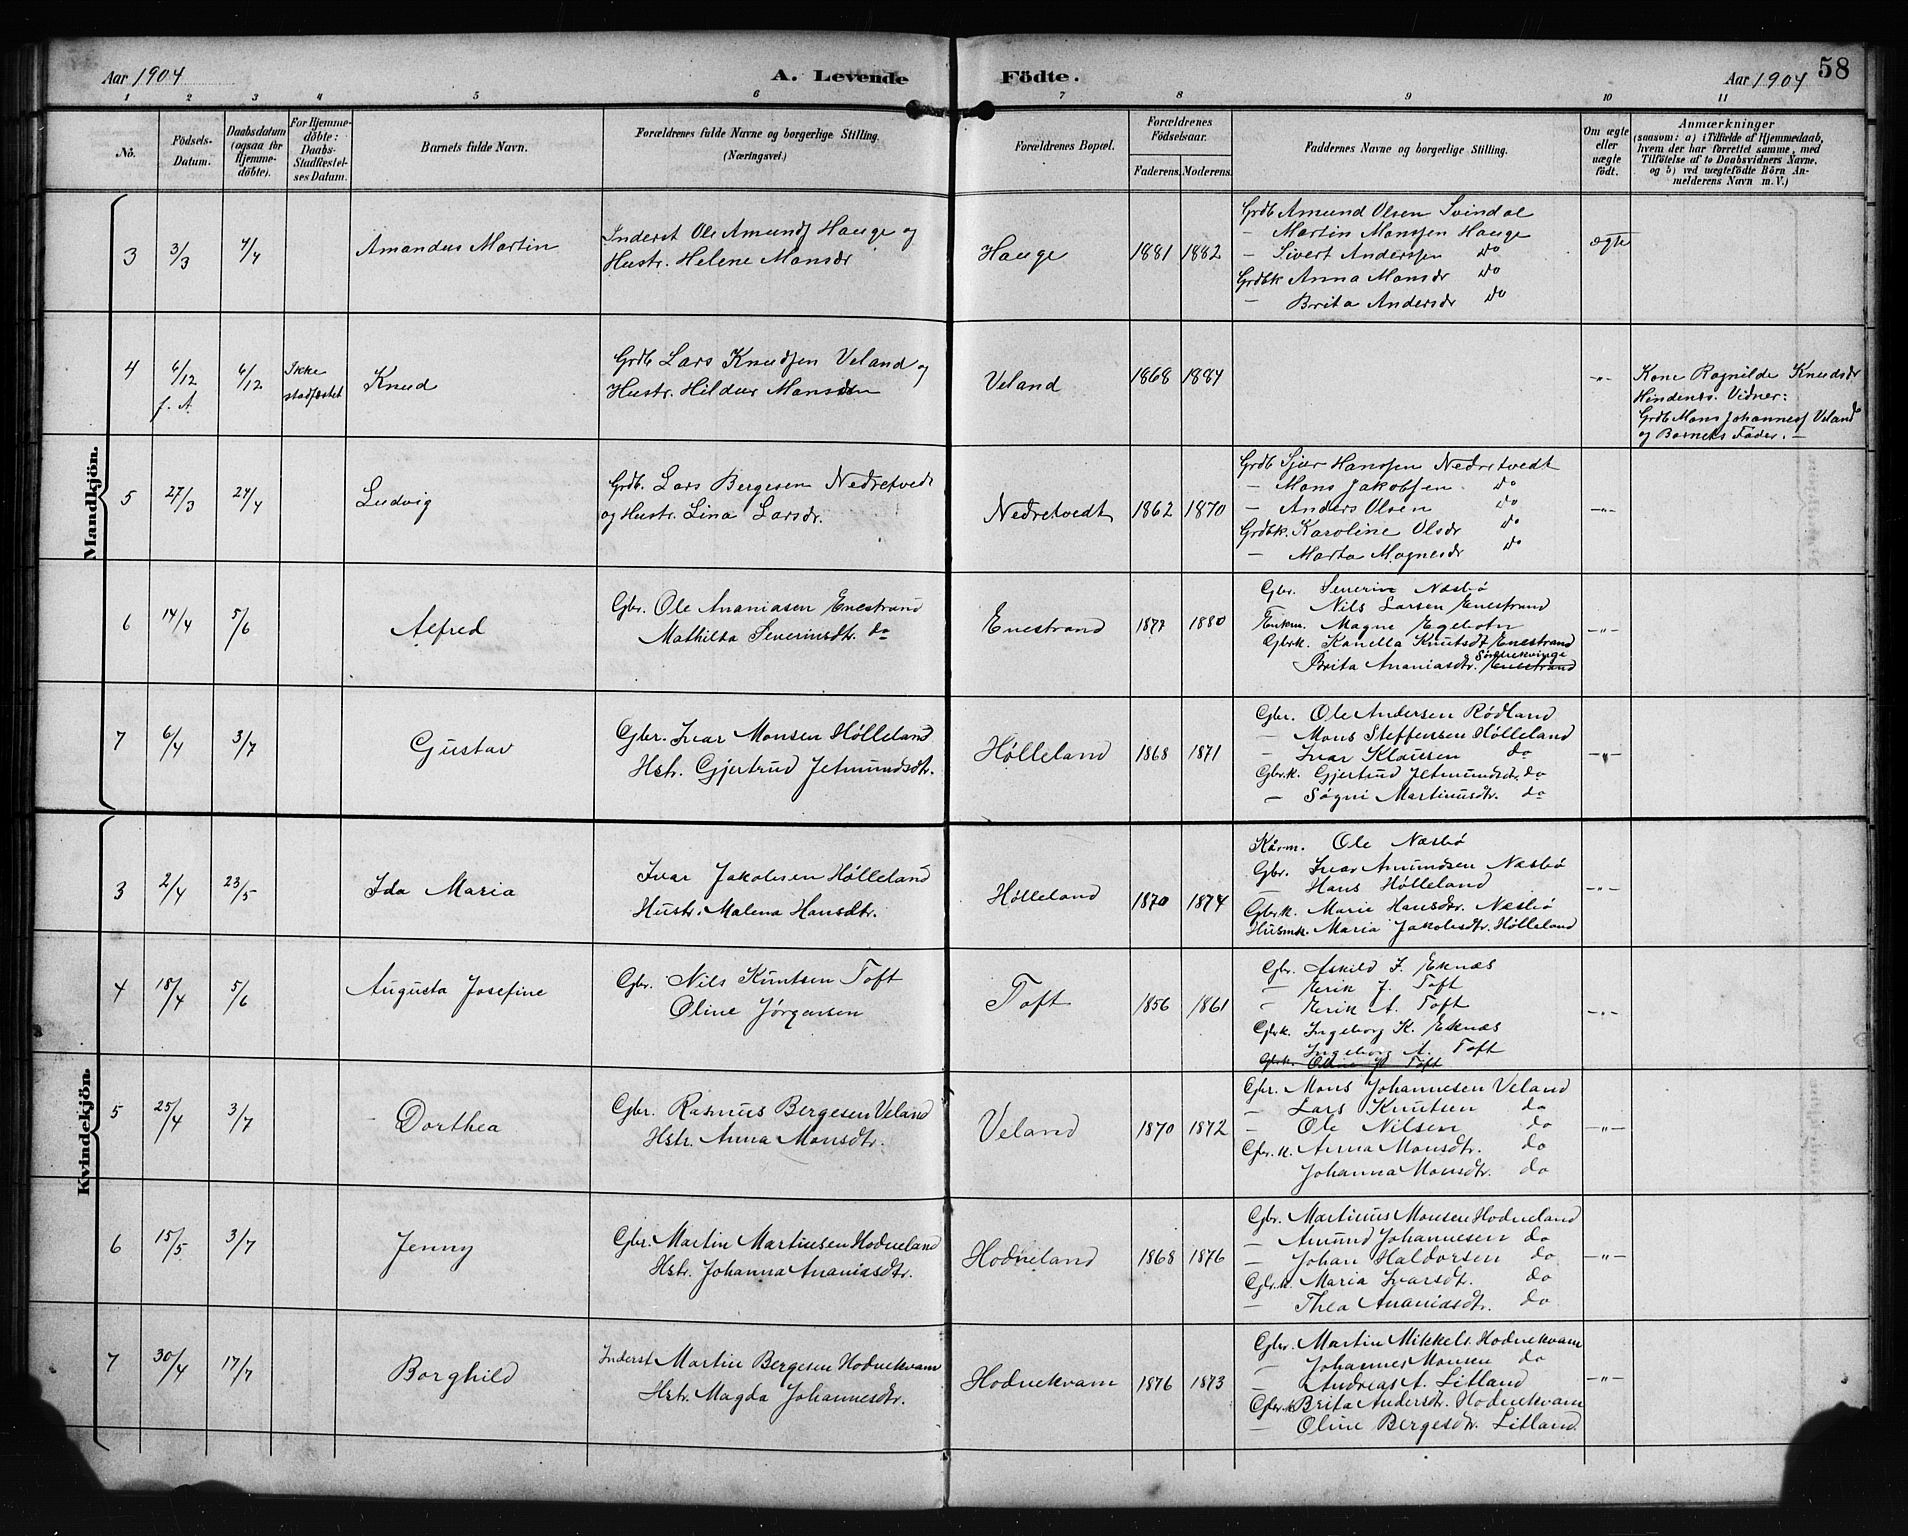 58
Aar 1904 A. Levende Födte. Aar 1904
1 2 3 4 5 6 7 8 9 10 11
No. Födsels-Datum. Daabsdatum (ogsaa for Hjemme-döbte). For Hjemme-döbte: Daabs-Stadfæstel-ses Datum. Barnets fulde Navn. Forældrenes fulde Navne og borgerlige Stilling. (Næringsvei.) Forældrenes Bopæl. Forældrenes Födselsaar. Faderens. Moderens. Faddernes Navne og borgerlige Stilling. Om ægte eller uægte födt. Anmærkninger (saasom: a) i Tilfælde af Hjemmedaab, hvem der har forrettet samme, med Tilföielse af to Daabsvidners Navne, og b) ved uægtefödte Börn An-melderens Navn m. V.)
Mandkjön.
3 3/3 4/4 Amandus Martin Inderst Ole Amunds Hauge og
Hustr. Helene Monsdr Hauge 1881 1882 ægte
Grdb Amund Olsen Svindal
— Martin Monssen Hauge
— Sivert Anderssen do
Grdbk Anna Monsdr do
— Brita Andersdr do
4 6/12 f. A. 6/12 Ikke stadfæstet Knud Grdb Lars Knudsen Veland og
Hustr. Hildur Monsden Veland 1868 1884 -"-
Kone Ragnilde Knudsdr
Hindenes. Vidner:
Grdb Mons Johannes Veland
og Barnets Fader. —
5 27/3 24/4 Ludvig Grdb. Lars Bergesen Nedretvedt
og Hustr. Lina Larsdr. Nedretvedt 1862 1870 -"-
Grdb Sjur Hanssen Nedretvedt
— Mons Jakobsen do
— Anders Olsen do
Grdbk. Karoline Olsdr do
— Marta Magnesdr do
6 14/4 5/6 Alfred Gbr. Ole Ananiasen Enestrand
Mathilda Severinsdtr. do Enestrand 1877 1880 -"-
Gbr. Severin Næsbø
Nils Larsen Enestrand
Enkm. Magne Egeholm
Gbrk. Kanella Knutsdt Enestrand
Brita Ananiasdtr. Enestrand
7 6/4 3/7 Gustav Gbr. Ivar Monsen Hølleland
Hstr. Gjertrud Jetmundsdtr. Hølleland 1868 1871 -"-
Gbr. Ole Andersen Rødland
— Mons Steffensen Hølleland
— Ivar Klausen do
Gbr.k. Gjertrud Jetmundsdtr. do
— Søgni Martinusdtr. do
Kvindekjön.
3 2/4 23/5 Ida Maria Ivar Jakobsen Hølleland
Hustr. Malena Hansdtr. Hølleland 1870 1874 -"-
Kårm. Ole Næsbø
Gbr. Ivar Amundsen Næsbø
— Hans Hølleland
Gbrk. Marie Hansdtr. Næsbø
Husmk. Maria Jakobsdtr. Hølleland
4 18/4 5/6 Augusta Josefine Gbr. Nils Knutsen Toft
Oline Jørgensen Toft 1856 1861 -"-
Gbr. Askild J. Eknæs
— Erik J. Toft
" Erik A. Toft
Gbrk. Ingeborg K. Eknæs
Ingeborg A. Toft
Gbrk. Toft
5 25/4 3/7 Dorthea Gbr. Rasmus Bergesen Veland
Hstr. Anna Monsdtr. Veland 1870 1872 -"-
Gbr. Mons Johannesen Veland
— Lars Knutsen do
— Ole Nilsen do
Gbr.k. Anna Monsdtr. do
Johanna Monsdtr. do
6 15/5 3/7 Jenny Gbr. Martin Martinsen Hodneland
Hstr. Johanna Ananiasdtr. Hodneland 1868 1876 -"-
Gbr. Martinus Monsen Hodneland
— Amund Johannesen do
— Johan Haldorsen do
Gbr.k. Maria Ivarsdtr. do
— Thea Ananiasdtr. do
7 30/4 17/7 Borghild Inderst Martin Bergesen Hodnekvam
Hstr. Magda Johannesdtr. Hodnekvam 1876 1873 -"-
Gbr. Martin Mikkels. Hodnekvam
— Johannes Monsen do
— Andreas A. Litland
Gbr.k. Brita Andersdtr. Hodnekvam
— Oline Bergesdtr. Litland